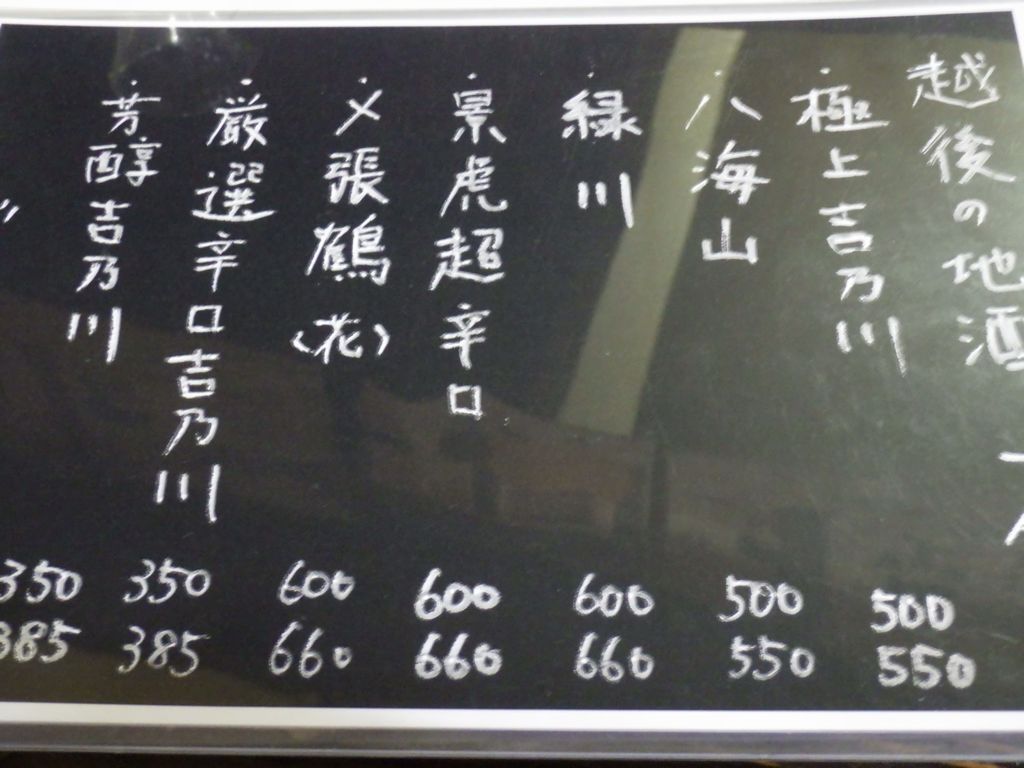 越後の地酒
・極上吉乃川 500 550
・八海山 500 550
・緑川 600 660
・景虎超辛口 600 660
・〆張鶴〈花〉 600 660
・厳選辛口吉乃川 350 385
・芳醇吉乃川 350 385